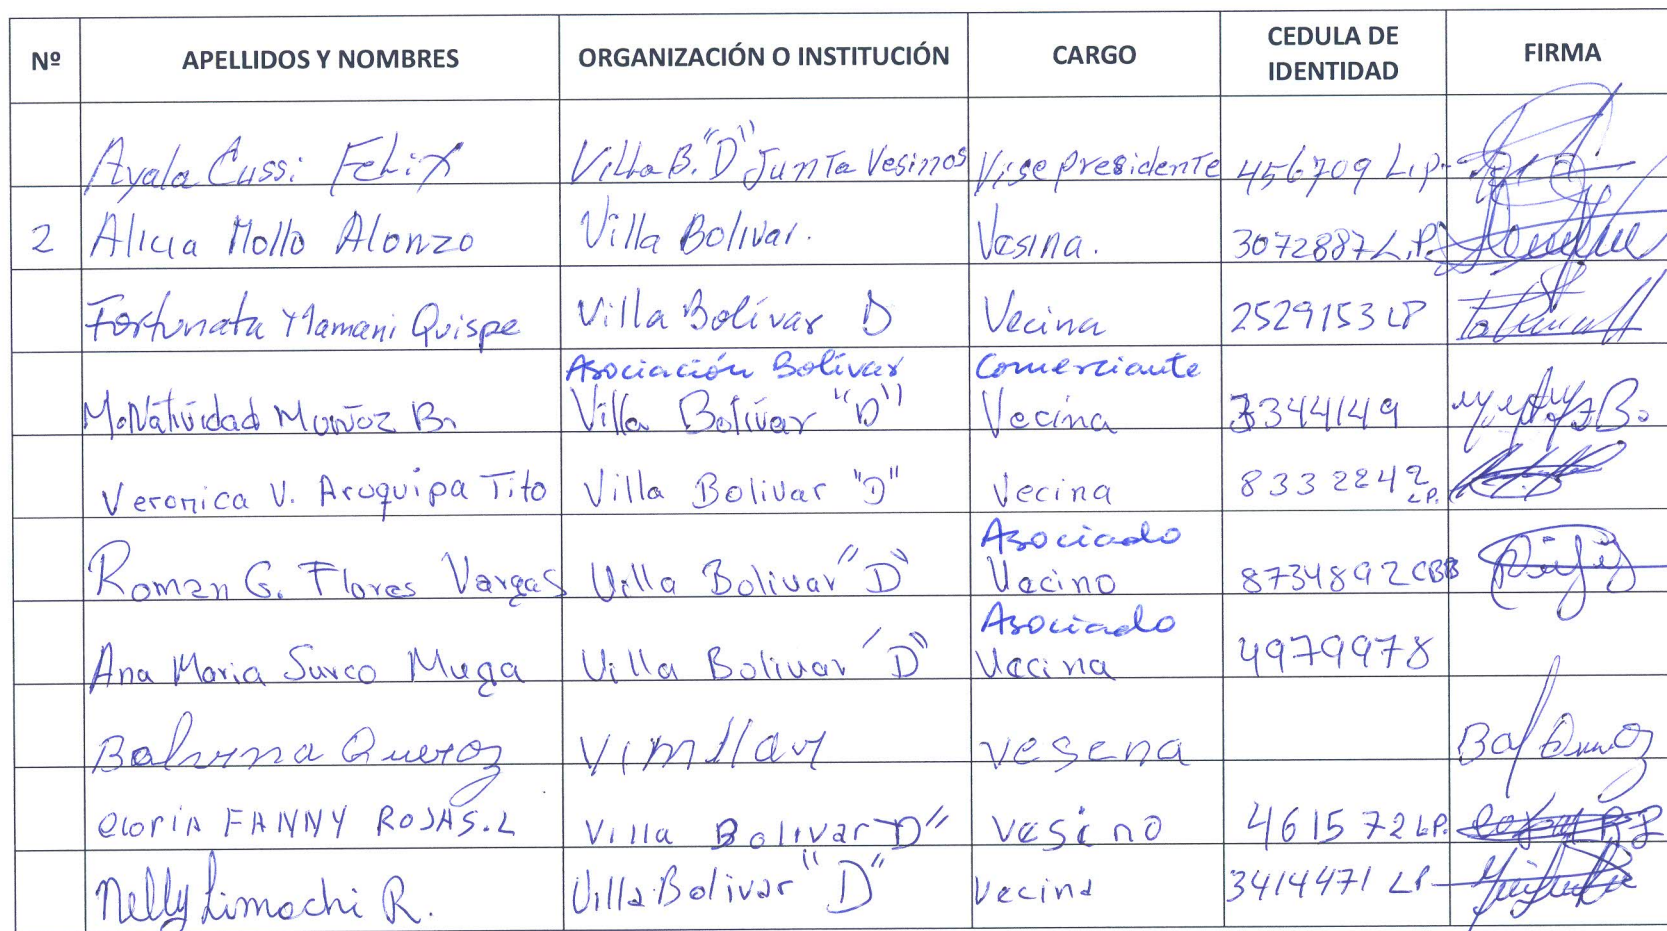 Nº APELLIDOS Y NOMBRES ORGANIZACIÓN O INSTITUCIÓN CARGO CEDULA DE IDENTIDAD FIRMA
Ayala Cussi Felix Villa B. "D" Junta Vesinos Vise presidente 456709 L.P.
2 Alicia Mollo Alonzo Villa Bolivar. Vesina. 3072887 L.P.
Fortunata Mamani Quispe Villa Bolívar D Vecina 2529153 LP
Asociación Bolívar Comerciante
M. Natividad Muñoz B. Villa Bolívar "D" Vecina 3344149
Veronica V. Aruquipa Tito Villa Bolivar "D" Vecina 8332242 LP.
Asociado
Roman G. Flores Vargas Villa Bolivar "D" Vecino 8734892 CBB
Asociado
Ana Maria Surco Muga Villa Bolivar "D" Vecina 4979978
Balvina vesena
FANNY ROJAS. L Villa Bolivar D" vesino 461572 LP.
Nelly Limachi R. Villa Bolivar "D" Vecina 3414471 LP